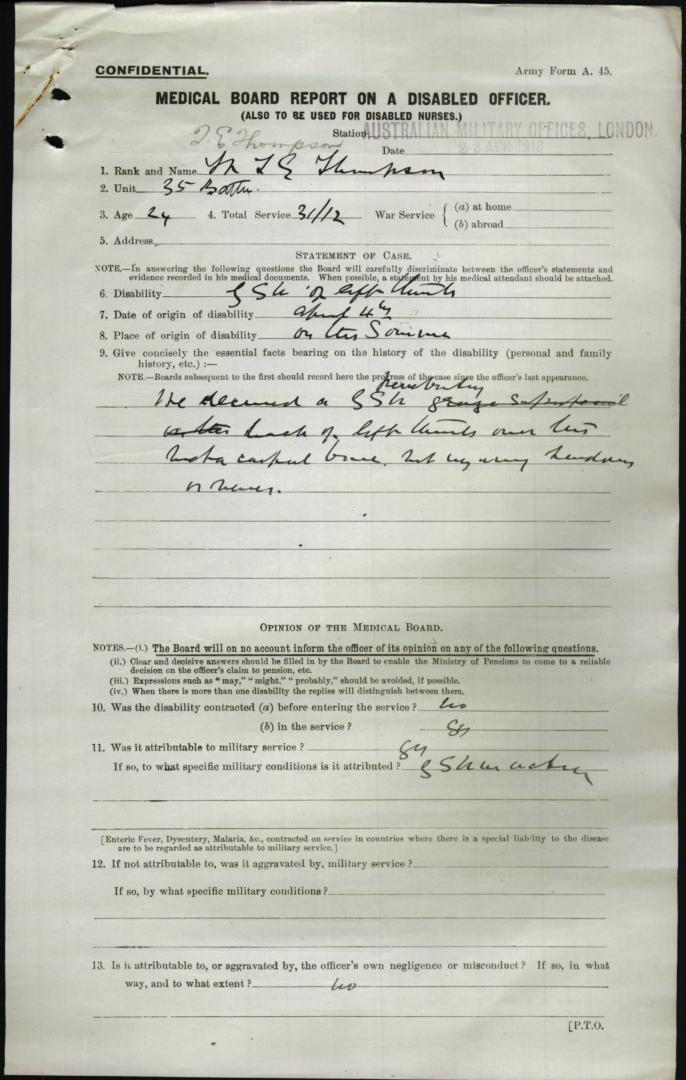 CONFIDENTIAL.
Army Form A. 45.
MEDICAL BOARD REPORT ON A DISABLED OFFICER.
(ALSO TO BE USED FOR DISABLED NURSES.)
T. E Thompson
Station AUSTRALIAN MILITARY OFFICES, LONDON.
Date APR 1918
1. Rank and Name Thompson
2. Unit 35 Battn.
3. Age 24 4. Total Service 31/12 War Service { (a) at home
(b) abroad
5. Address
STATEMENT OF CASE.
NOTE.—In answering the following questions the Board will carefully discriminate between the officer's statements and
evidence recorded in his medical documents. When possible, a statement by his medical attendant should be attached.
6. Disability G S W of left thumb
7. Date of origin of disability April 4th
8. Place of origin of disability on the Somme
9. Give concisely the essential facts bearing on the history of the disability (personal and family
history, etc.) :—
NOTE.—Boards subsequent to the first should record here the progress of the case since the officer's last appearance.
He received a G S W
back of left thumb over the
meta carpal bone. not injuring tendons
or nerves.
OPINION OF THE MEDICAL BOARD.
NOTES.—(i.) The Board will on no account inform the officer of its opinion on any of the following questions.
(ii.) Clear and decisive answers should be filled in by the Board to enable the Ministry of Pensions to come to a reliable
decision on the officer's claim to pension, etc.
(iii.) Expressions such as "may," "might," "probably," should be avoided, if possible.
(iv.) When there is more than one disability the replies will distinguish between them.
10. Was the disability contracted (a) before entering the service ? no
(b) in the service ?
11. Was it attributable to military service ?
If so, to what specific military conditions is it attributed ? G S W in action
[Enteric Fever, Dysentery, Malaria, &c., contracted on service in countries where there is a special liability to the disease
are to be regarded as attributable to military service.]
12. If not attributable to, was it aggravated by, military service ?
If so, by what specific military conditions ?
13. Is it attributable to, or aggravated by, the officer's own negligence or misconduct ? If so, in what
way, and to what extent ? no
[P.T.O.